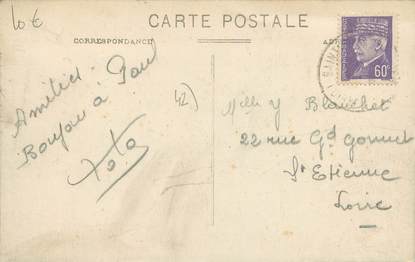 10 €
CARTE POSTALE
CORRESPONDANCE
60c
Amitiés.
Bonjour à Paul
Toto
42)
Melle Y Blanchet
22 rue Gd Gonnet
St Etienne
Loire